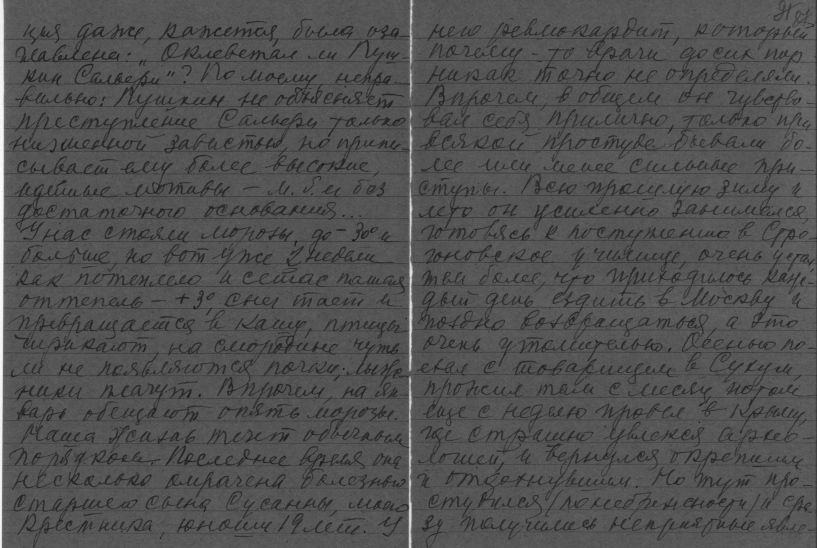 ция даже, кажется, была оза-
главлена: „Оклеветал ли Пуш-
кин Сальери"? По моему непра-
вильно: Пушкин не объясняет
преступление Сальери только
низменной завистью, но припи-
сывает ему более высокие,
идейные мотивы – м. б. и без
достаточного основания...
У нас стояли морозы, до – 30° и
больше, но вот уже 2 недели
как потеплело и сейчас полная
оттепель – +3°, снег тает и
превращается в кашу, птицы
чирикают, на смородине чуть
ли не появляются почки;
ники плачут. Впрочем, на ян-
варь обещают опять морозы.
Наша жизнь течет обычным
порядком. Последнее время она
несколько омрачена болезнью
старшего сына Сусанны, моего
крестника, юноши 19 лет. У
него ревмокардит, который
почему-то врачи до сих пор
никак точно не определяли.
Впрочем, в общем он чувство-
вал себя прилично, только при
всякой простуде бывали бо-
лее или менее сильные при-
ступы. Всю прошлую зиму и
лето он усиленно занимался,
готовясь к поступлению в Стро-
гоновское училище, очень устал,
тем более, что приходилось каж-
дый день ездить в Москву и
поздно возвращаться, а это
очень утомительно. Осенью по-
ехал с товарищем в Сухум,
прожил там с месяц, потом
еще с неделю провел в Крыму,
где страшно увлекся архео-
логией, и вернулся окрепшим
и отдохнувшим. Но тут про-
студился (по небрежности) и сра-
зу получились неприятные явле-